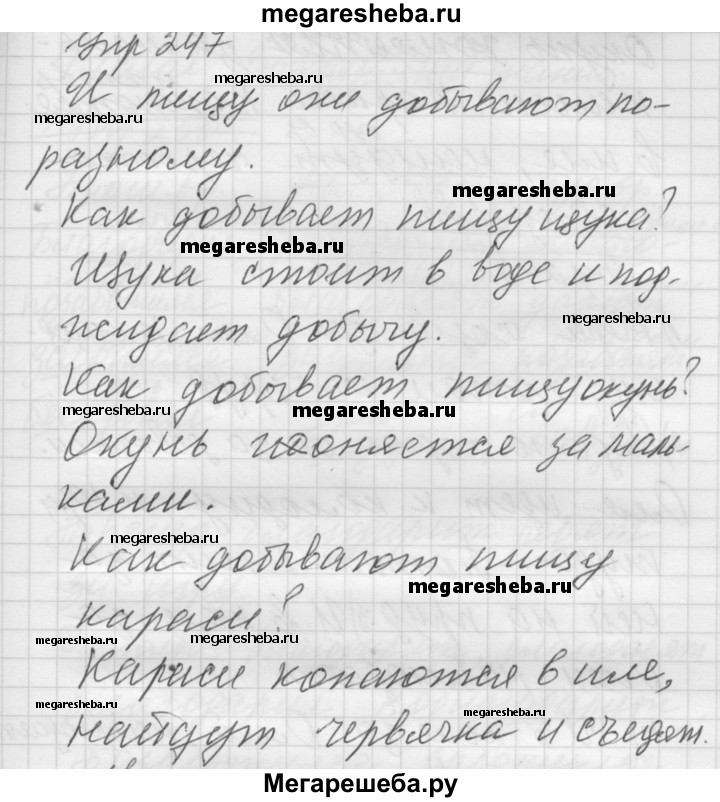 megaresheba.ru
упр 247
megaresheba.ru
И пищу они добывают по-
megaresheba.ru
разному.
megaresheba.ru
Как добывает пищу щука?
megaresheba.ru
Щука стоит в воде и под-
megaresheba.ru
жидает добычу.
Как добывает пищу окунь?
megaresheba.ru
megaresheba.ru
Окунь гоняется за маль-
ками.
megaresheba.ru
Как добывают пищу
megaresheba.ru
караси?
megaresheba.ru
megaresheba.ru
Караси копаются в иле,
megaresheba.ru
megaresheba.ru
найдут червячка и съедят.
Мегарешеба.ру